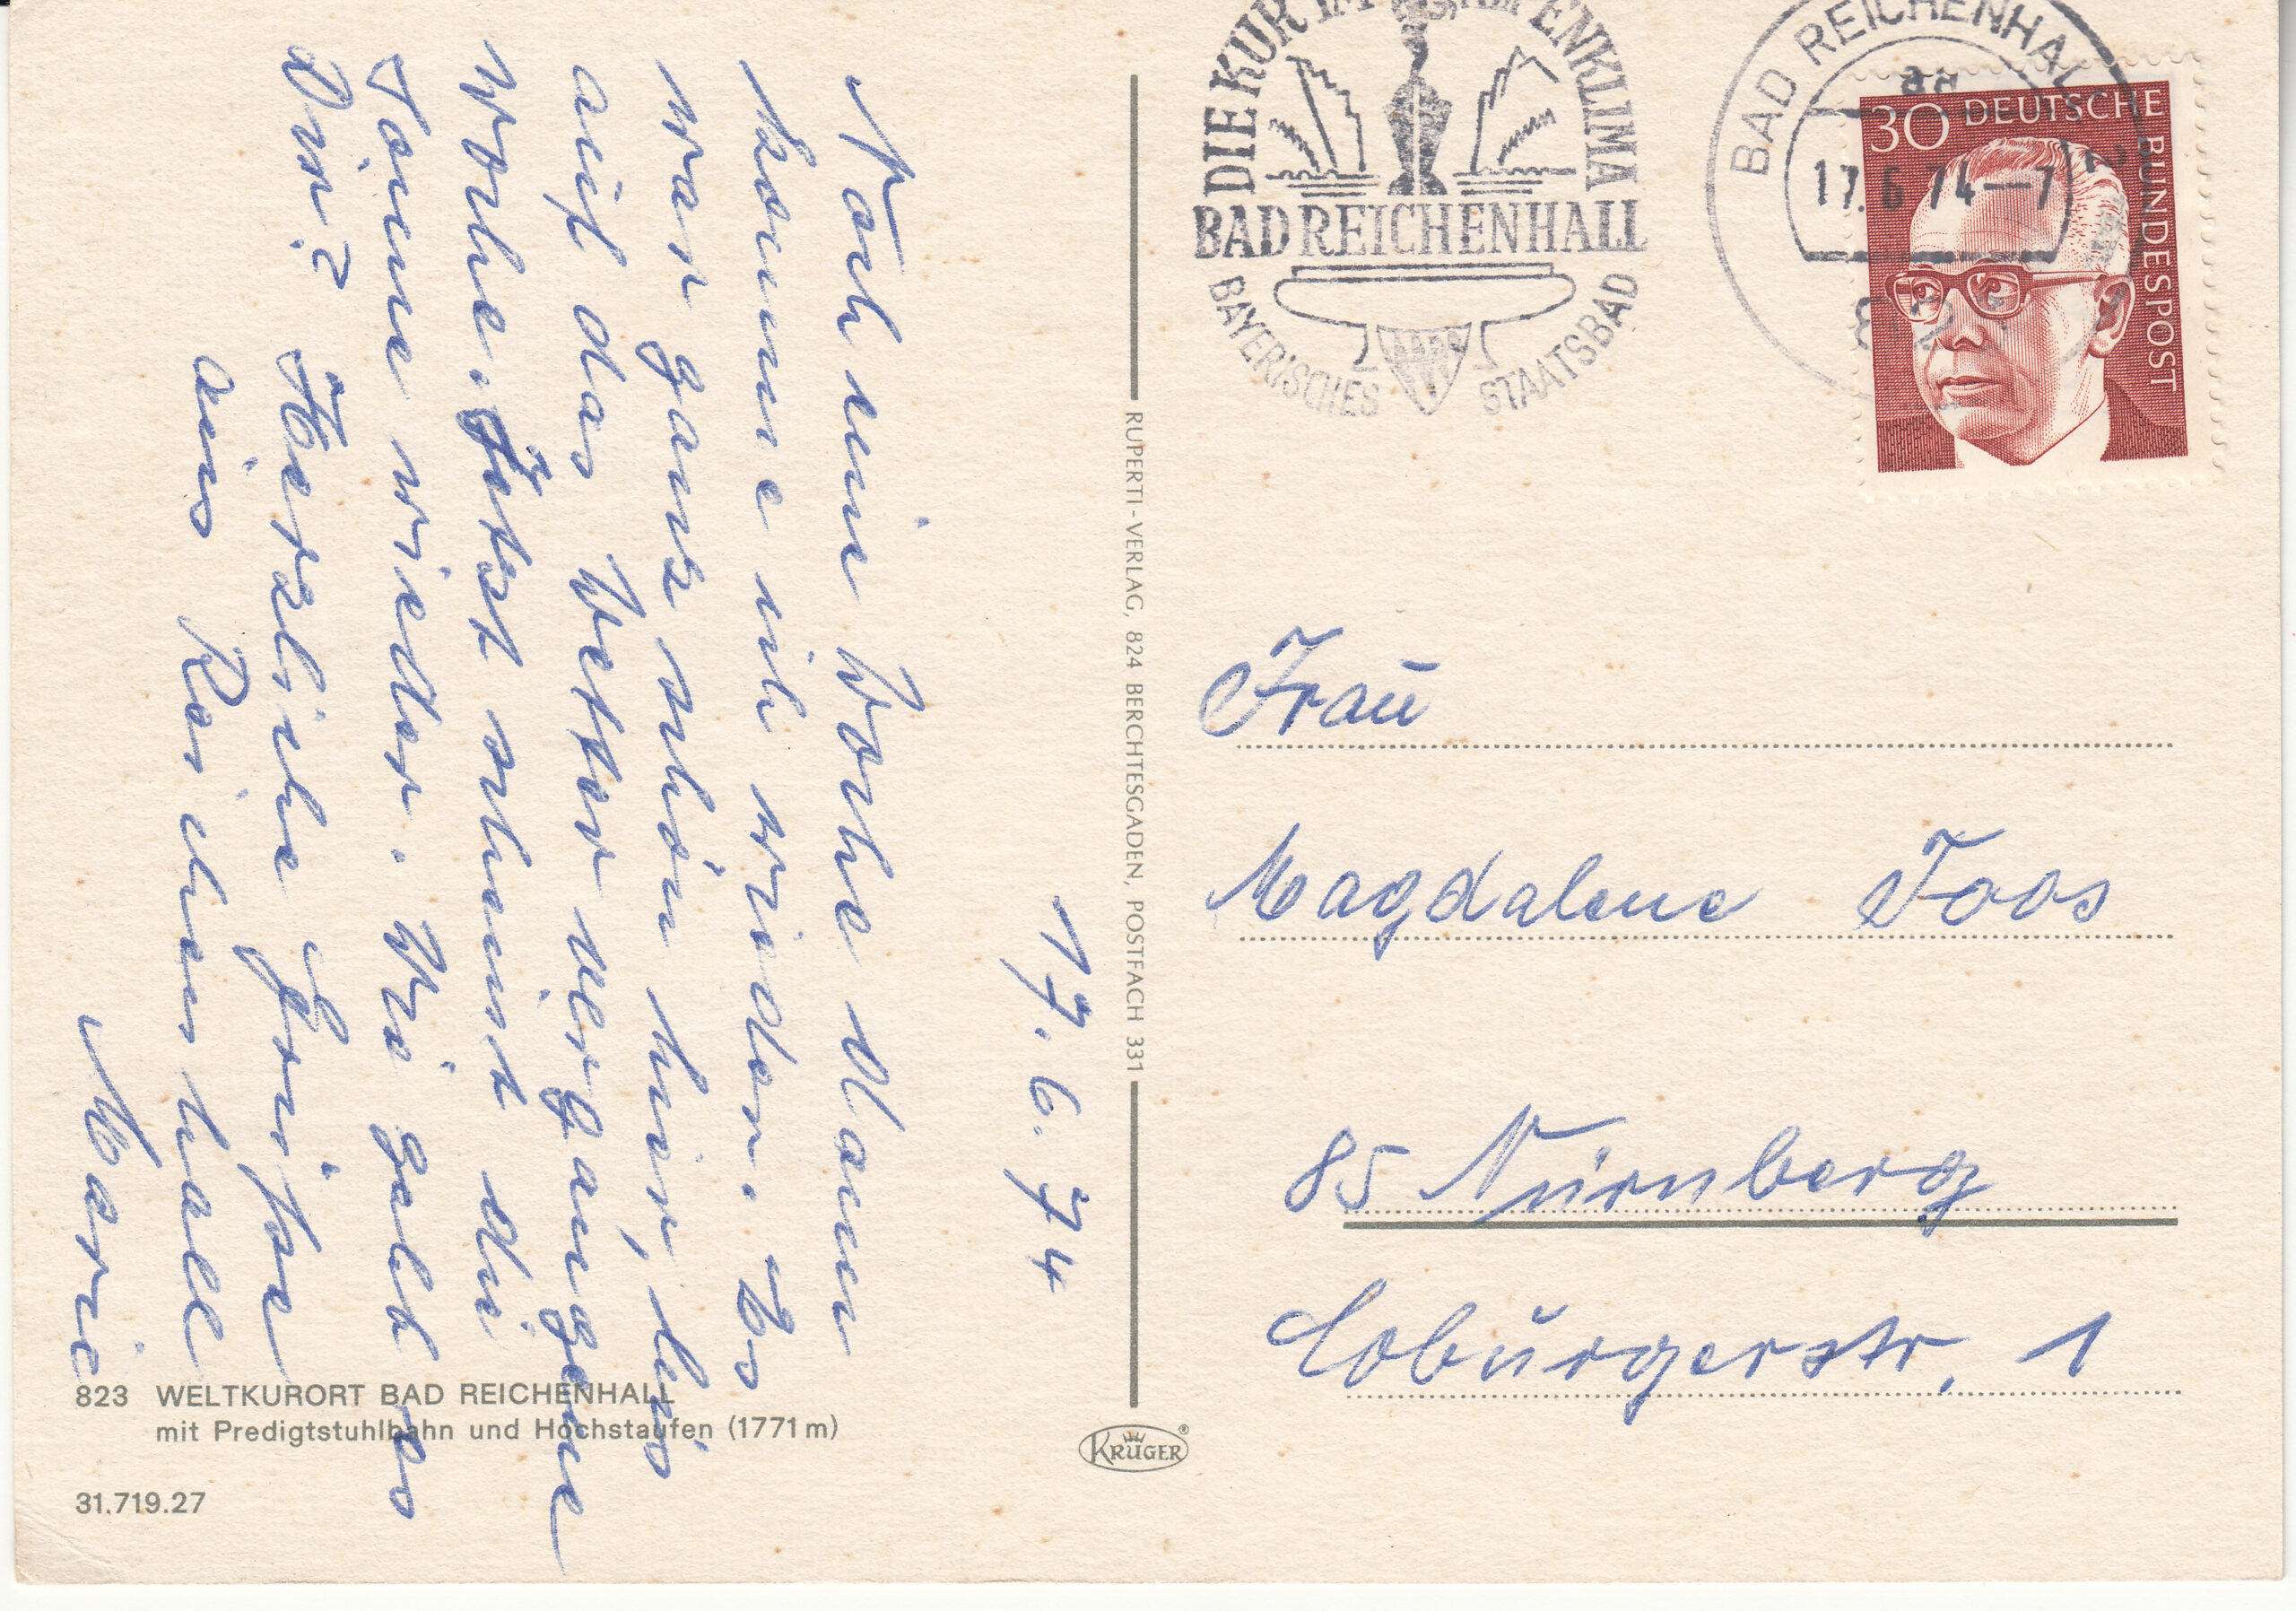 17. 6. 74
Noch eine Woche dann
komme ich wieder. Es
war ganz schön hier, bis
auf das Wetter vergangene
Woche. Jetzt scheint die
Sonne wieder. Wie geht es
Dir?
Herzliche Grüße
aus Reichenhall
Marie
823 WELTKURORT BAD REICHENHALL
mit Predigtstuhlbahn und Hochstaufen (1771 m)
31.719.27
RUPERTI-VERLAG, 824 BERCHTESGADEN, POSTFACH 331
KRÜGER
DIE KUR IM ALPENKLIMA
BAD REICHENHALL
BAYERISCHES STAATSBAD
BAD REICHENHALL
17.6.74-7
30 DEUTSCHE BUNDESPOST
Frau
Magdalene Joos
85 Nürnberg
Coburgerstr. 1